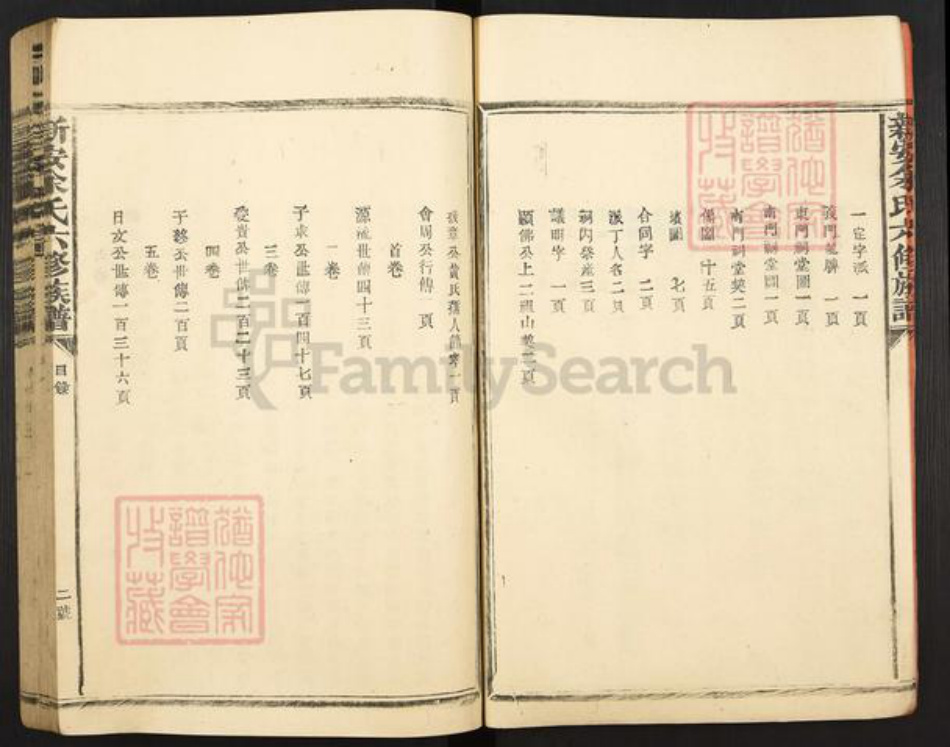 新安余氏六修族譜
一定字派 一頁
義門 牌 一頁
東門祠堂圖一頁
南門祠堂圖一頁
南門祠堂契二頁
佛圖 十五頁
墳圖 七頁
合同字 二頁
派丁人名二頁
祠內祭產三頁
議明字 一頁
顯佛公上二 山契二頁
公黃氏孺人 一頁
會周公行傳一頁
首卷
源流世傳四十三頁
一卷
子求公世傳一百四十七頁
三卷
受貴公世傳二百二十三頁
四卷
子移公世傳二百頁
五卷
日文公世傳一百三十六頁
新安余氏六修族譜
目錄
二號
猶他家譜學會收藏
猶他家譜學會收藏
FamilySearch